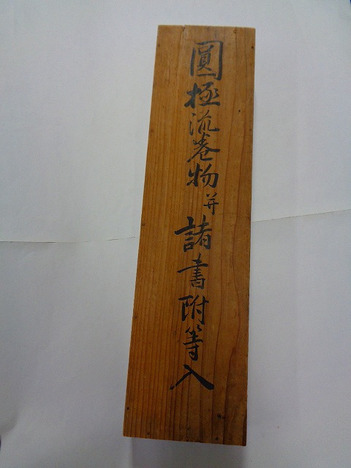 圓極流卷物并諸書附等入